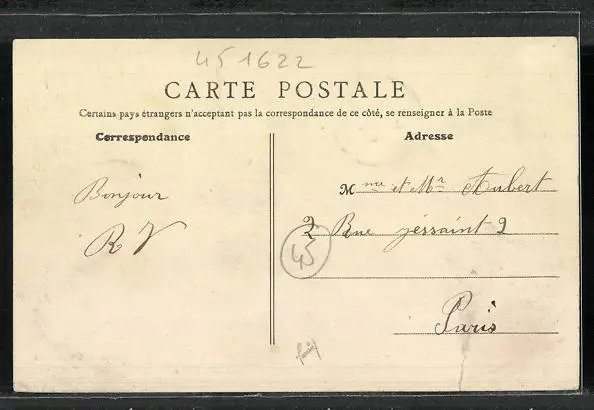 451622
CARTE POSTALE
Certains pays étrangers n'acceptant pas la correspondance de ce côté, se renseigner à la Poste
Correspondance
Bonjour
R V
Adresse
Mme et Mr Aubert
2 Rue jéssaint 2
45
Paris